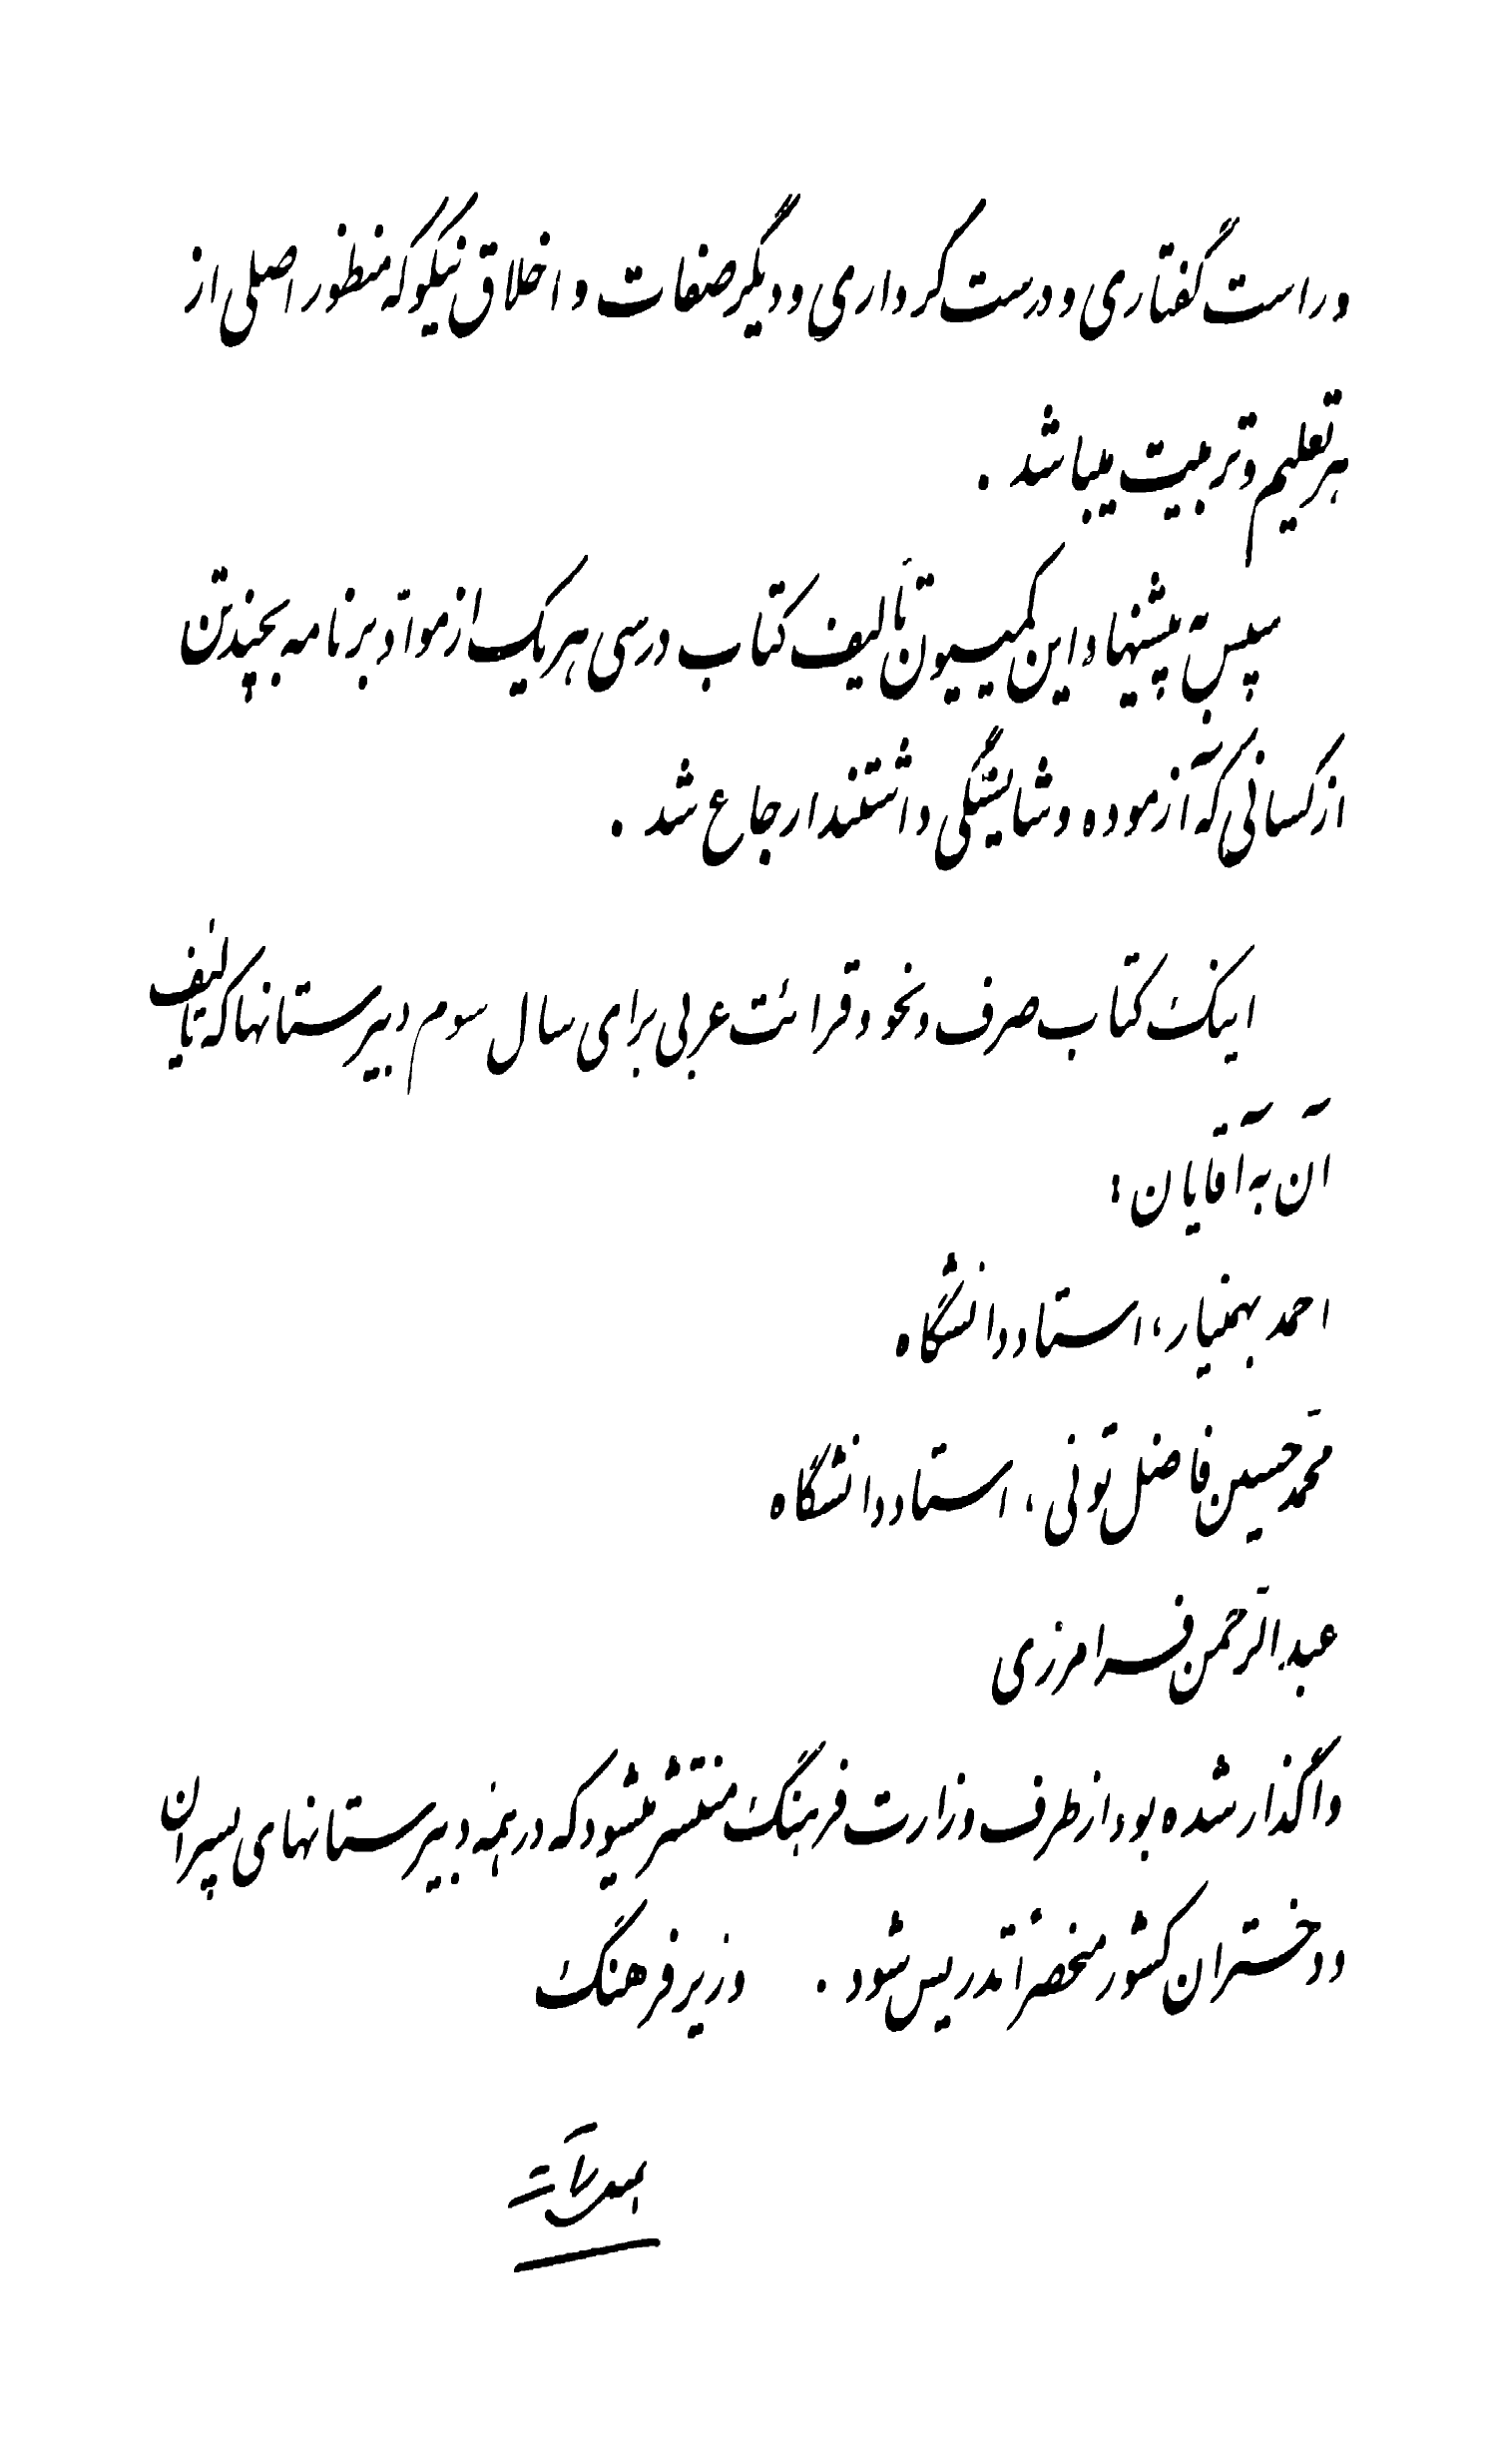 و راست گفتاری و درست کرداری و دیگر صفات و اخلاق نیکو که منظور اصلی از
هر تعلیم و تربیت میباشد .
سپس به پیشنهاد این کمیسیون تألیف کتاب درسی هر یک از موادّ برنامه بچند تن
از کسانی که آزموده و شایستگی داشتند ارجاع شد .
اینک کتاب صرف و نحو و قرائت عربی برای سال سوم دبیرستانها که تألیف
آن به آقایان :
احمد بهمنیار ، استاد دانشگاه
محمّد حسین فاضل تونی ، استاد دانشگاه
عبدالرّحمن فرامرزی
واگذار شده بود از طرف وزارت فرهنگ منتشر میشود که در همهٔ دبیرستانهای پسران
و دختران کشور منحصراً تدریس شود . وزیر فرهنگ